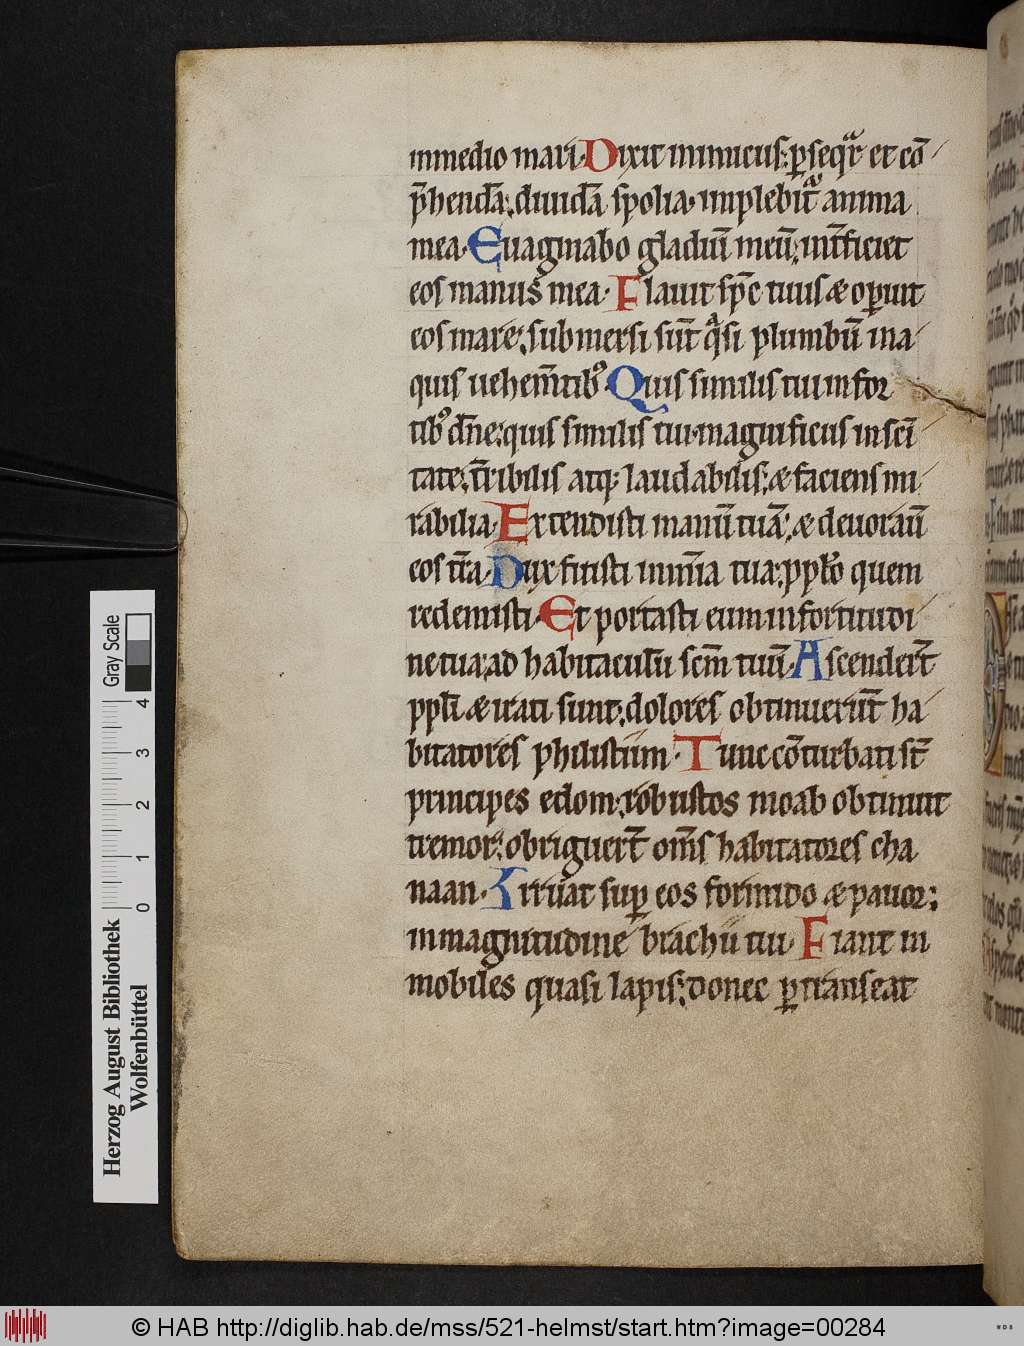 inmedio mari. Dixit inimicus: ꝑseqᷓr et cō
p̄hendā: diuidā spolia. implebit᷑ anima
mea. Euaginabo gladiū meū: int̄ficiet
eos manus mea. Flauit sp̄c tuus æ oꝑuit
eos mare: submersi sūt qᷓsi plumbū in a
quis uehem̄tibꝰ. Quis similis tui in for
tibꝰ dn̄e: quis similis tui. magnificus in sc̄i
tate: t̄ribilis atq; laudabilis: æ faciens mi
rabilia. Extendisti manū tuā: æ deuorauit̄
eos t̄ra. Dux fuisti in mīa tua: ppl̄o quem
redemisti. Et portasti eum in fortitudi
ne tua: ad habitaculū scm̄ tuū. Ascender̄t
ppl̄i æ irati sunt: dolores obtinuerūt ha
bitatores philistiim. Tunc cōturbati st̄
principes edom: robustos moab obtinuit
tremor: obriguer̄t om̄s habitatores cha
naan. Irruat suꝑ eos formido æ pauor:
in magnitudine brachii tui. Fiant in
mobiles quasi lapis: donec ꝑtranseat
Herzog August Bibliothek
Wolfenbüttel
0 1 2 3 4
Gray Scale
© HAB http://diglib.hab.de/mss/521-helmst/start.htm?image=00284